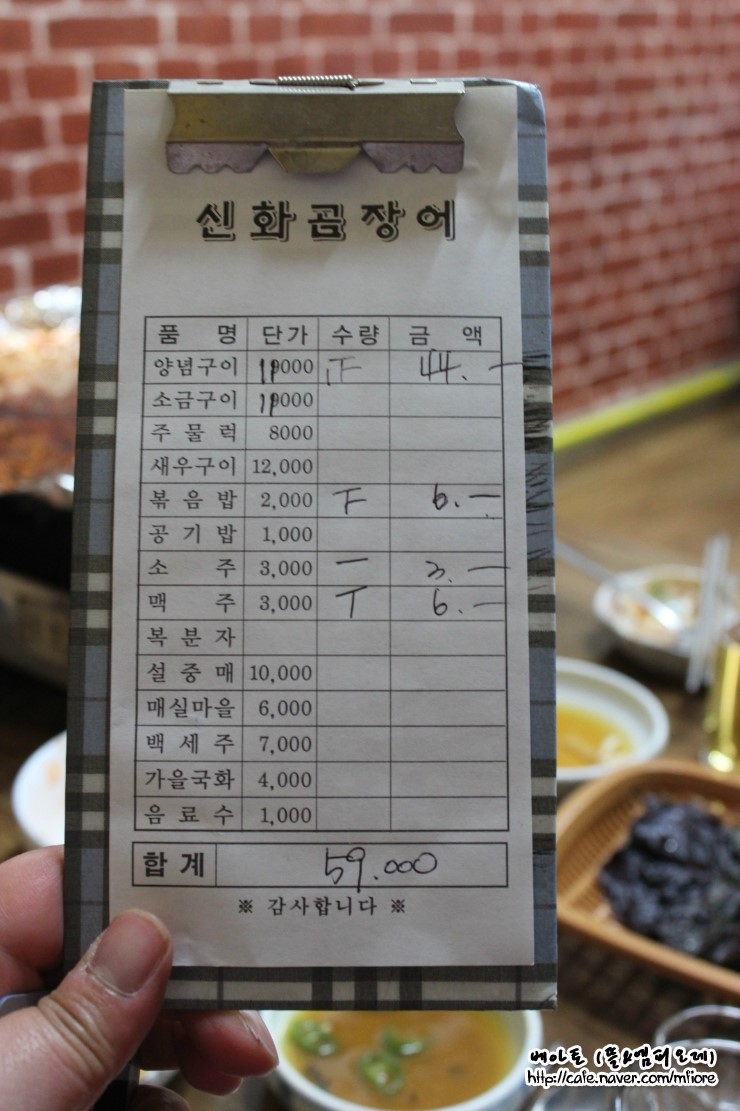 신화곰장어
품 명 단가 수량 금 액
양념구이 11000 正 44.—
소금구이 11000
주 물 럭 8000
새우구이 12,000
볶 음 밥 2,000 下 6.—
공 기 밥 1,000
소 주 3,000 一 3.—
맥 주 3,000 丅 6.—
복 분 자
설 중 매 10,000
매실마을 6,000
백 세 주 7,000
가을국화 4,000
음 료 수 1,000
합 계 59.000
※ 감사합니다 ※
베아토 (풀&엠더오제)
http://cafe.naver.com/mfiore